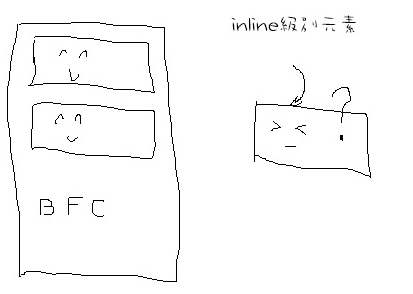 inline級別元素
BFC